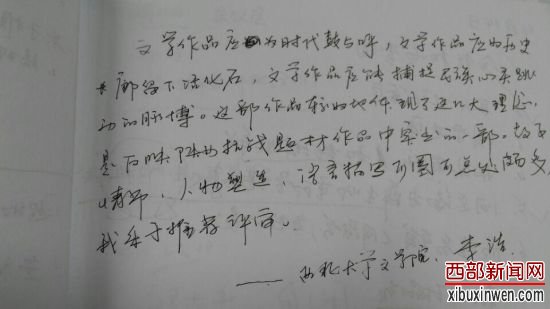 文学作品应为时代鼓与呼，文学作品应为历史
长廊留下活化石，文学作品应能捕捉民族心灵跳
动的脉博。这部作品较好地体现了这几大理念，
是历时陕西抗战题材作品中突出的一部。故事
情节，人物塑造，语言描写可圈可点处颇多，
我乐于推荐评审。
——西北大学文学院、李浩
西部新闻网
xibuxinwen.com